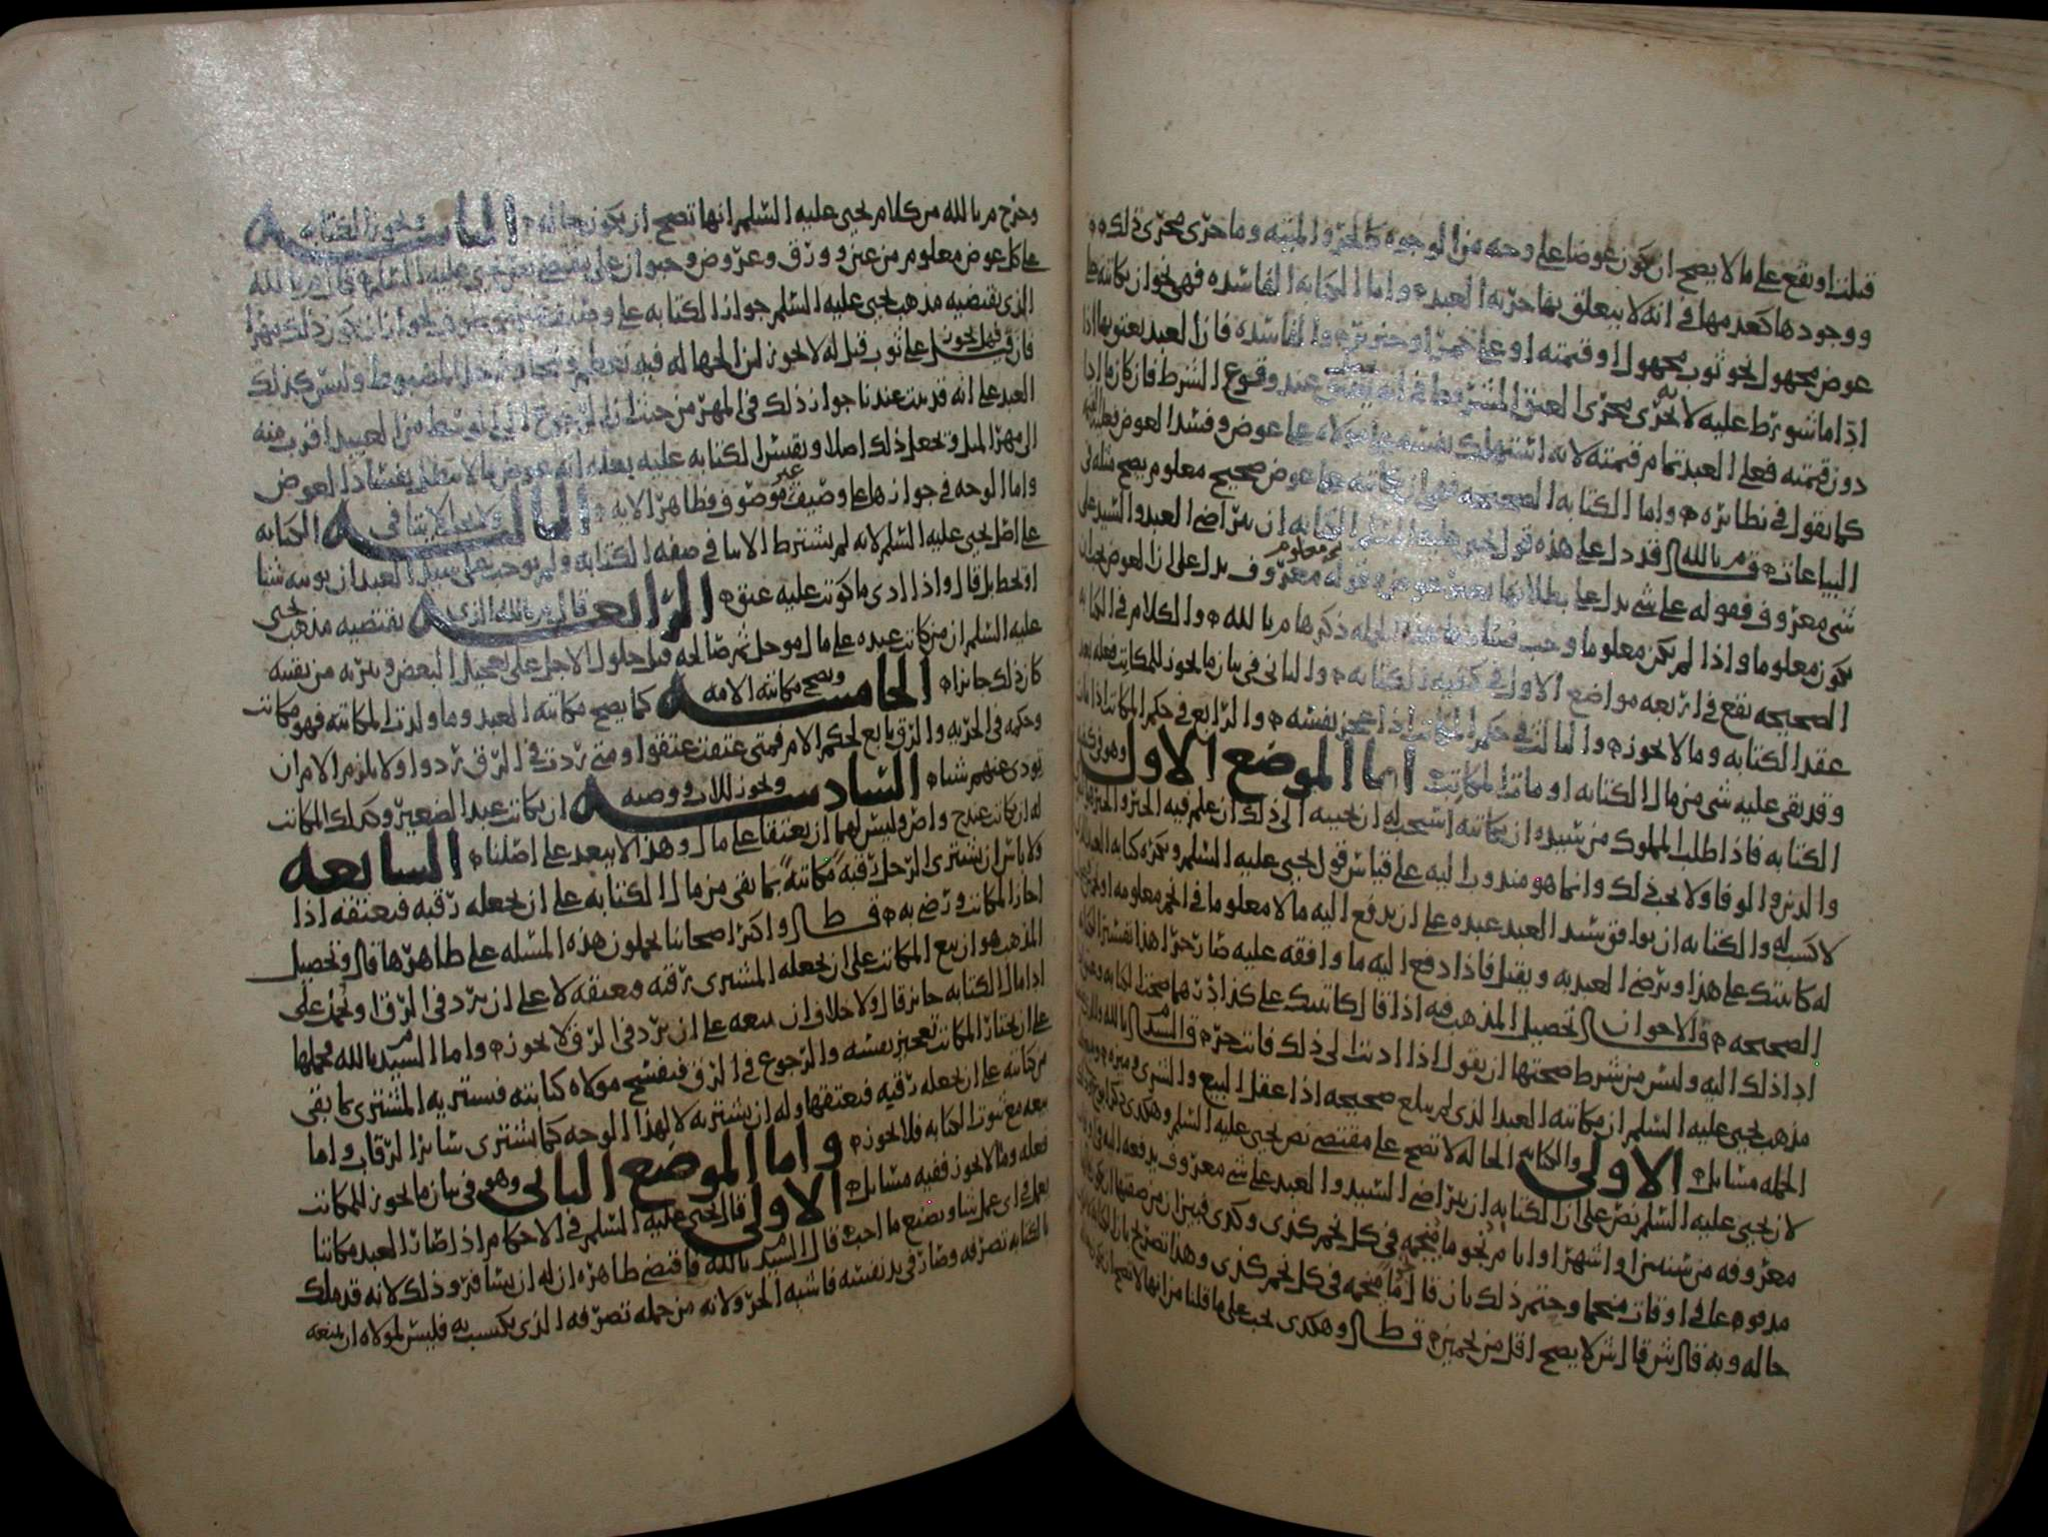 قبلت او يقع على ما لا يصح ان يكون عوضا على وجه من الوجوه كالحر والميته وما جرى مجرى ذلك
ووجودها كعدمها في انه لا يتعلق بها حرية العبد واما الكتابه الفاسده فهي نحو ان يكاتبه على
عوض مجهول نحو ثوب مجهول او قيمته او على خمر او خنزير والفاسده فان العبد يعتق بها اذا
ادا ما شورط عليه لانه يجري مجرى العتق المشروط في انه يقع عند وقوع الشرط فان كان ما ادا
دون قيمته فعلى العبد تمام قيمته لانه استهلك نفسه على مولاه على عوض وفسد العوض
كما نقول في نظائره واما الكتابه الصحيحه فهو ان يكاتبه على عوض صحيح معلوم يصح مثله في
البياعات قال م بالله قد دل على هذه قول يحيى عليه السلم الكتابه ان يتراضى العبد والسيد على
شي معروف فقوله على شي يدل على بطلانها بغير عوض وقوله معروف يدل على ان العوض يجب ان
يكون معلوما واذا لم يكن معلوما وجب فساد هذه الجمله ذكرها م بالله والكلام في الكتابه
الصحيحه يقع في اربعه مواضع الاول في كيفية الكتابه والثاني في بيان ما يجوز للمكاتب فعله بعد
عقد الكتابه وما لا يجوز والثالث في حكم المكاتب اذا عجز نفسه والرابع في حكم المكاتب اذا مات
وقد بقي عليه شي من مال الكتابه او مات المكاتب اما الموضع الاول وهو في كيفية
الكتابه فاذا طلب المملوك من سيده ان يكاتبه استحب له ان يجيبه الى ذلك ان علم فيه الخير والخير هو
والدين والوفا ولا يجب ذلك وانما هو مندوب اليه على قياس قول يحيى عليه السلم ويكره كتابه العبد الذي
لا كسب له والكتابه ان يوافق سيد العبد عبده على ان يدفع اليه مالا معلوما في انجم معلومه
له كاتبتك على هذا ويرضى العبد به ويقبل فاذا دفع اليه ما وافقه عليه صار حرا هذا تفسير الكتابه
الصحيحه قال الاخوان تحصيل المذهب فيه اذا قال كاتبتك على كذا درهما صحت الكتابه
ادا ذلك اليه وليس من شرط صحتها ان يقول اذا اديت الي ذلك فانت حر قال السيد م بالله
مذهب يحيى عليه السلم ان مكاتبة العبد الذي لم يبلغ صحيحه اذا عقل البيع والشرى وميزه
الجمله مسائل الاولى والكتابه الحاله لا تصح على مقتضى نص يحيى عليه السلم وهكذى ذكر
لان يحيى عليه السلم نص على ان الكتابه ان يتراضى السيد والعبد على شي معروف يدفعه اليه في اوقات
معروفه من سنين او اشهر او ايام نجوما منجمه في كل نجم كذى وكذى فبين ان من صفتها ان يكون
مدفوعا في اوقات منجما وختم ذلك بان قال نجوما منجمه في كل نجم كذى وهذا تصريح بان
حاله وبه قال ش قال ش لا يصح اقل من نجمين قال ط وهكذى يجب على ما قلنا من انها لا تصح ان يكون
وخرج م بالله من كلام يحيى عليه السلم انها تصح ان يكون حاله الثانيه وتجوز الكتابه
على كل عوض معلوم من عين وورق وعروض وحيوان على مقتضى نص يحيى عليه السلم قال م بالله
الذي يقتضيه مذهب يحيى عليه السلم جواز الكتابه على وصيف
فان قيل فهل يجوز على ثوب قيل له لا يجوز لان الجهاله فيه تعظم
العبد على انه قد ثبت عندنا جواز ذلك في المهر من حيث ان الرجوع الى الوسط من العبيد اقرب منه
الى مهر المثل ونجعل ذلك اصلا ونقيس الكتابه عليه بعله انه عوض ما لا تبطل بفساد العوض
واما الوجه في جوازها على وصيف غير موصوف فظاهر الايه الثالثه ولا يجب الايتا في الكتابه
على اصل يحيى عليه السلم لانه لم يشترط الايتا في صفه الكتابه ولم يوجب على سيد العبد ان يوتيه شيا
او يحط بل قال واذا ادى ما كوتب عليه عتق الرابعه قال م بالله الذي يقتضيه مذهب يحيى
عليه السلم ان من كاتب عبده على مال موجل ثم صالحه قبل حلول الاجل على تعجيل البعض ويبريه من بقيته
كان ذلك جائزا الخامسه ويصح مكاتبة الامه كما يصح مكاتبة العبد وما ولدت المكاتبه فهو مكاتب
وحكمه في الحريه والرق تابع لحكم الام فمتى عتقت عتقوا ومتى ردت في الرق ردوا ولا يلزم الام ان
تودي عنهم شيا السادسه ويجوز للاب ووصيه ان يكاتب عبد الصغير وكذلك المكاتب
له ان يكاتب عند ح و ص وليس لهما ان يعتقا على مال وهذا لا يبعد على اصلنا السابعه
ولا باس ان يشتري الرجل رقبه مكاتبه بما بقي من مال الكتابه على ان يجعله رقبه فيعتقه اذا
اجاز المكاتب ورضي به قال ط واكثر اصحابنا يحملون هذه المسله على ظاهرها قال وتحصيل
المذهب هو ان بيع المكاتب على ان يجعله المشتري برقبه ويعتقه لا على ان يرد في الرق او يحمل على
ادا مال الكتابه جائز قال ولا خلاف ان بيعه على ان يرد في الرق لا يجوز واما السيد م بالله فحملها
على ان يختار المكاتب تعجيز نفسه والرجوع في الرق فيفسخ مولاه كتابته فيشتريه المشتري بما بقي
من كتابته على ان يجعله رقبه فيعتقها وله ان يشتريه لا لهذا الوجه كما يشتري سائر الرقاب واما
بيعه مع ثبوت الكتابه فلا يجوز واما الموضع الثاني وهو في بيان ما يجوز للمكاتب
فعله وما لا يجوز ففيه مسائل الاولى قال يحيى عليه السلم في الاحكام اذا صار العبد مكاتبا
يعمل اي عمل شا ويصنع ما احب قال السيد م بالله فاقتضى ظاهره ان له ان يسافر وذلك لانه قد ملك
بالكتابه تصرفه وصار في يد نفسه فاشبه الحر ولانه من جمله تصرفه الذي يكسب به فليس لمولاه ان يمنعه